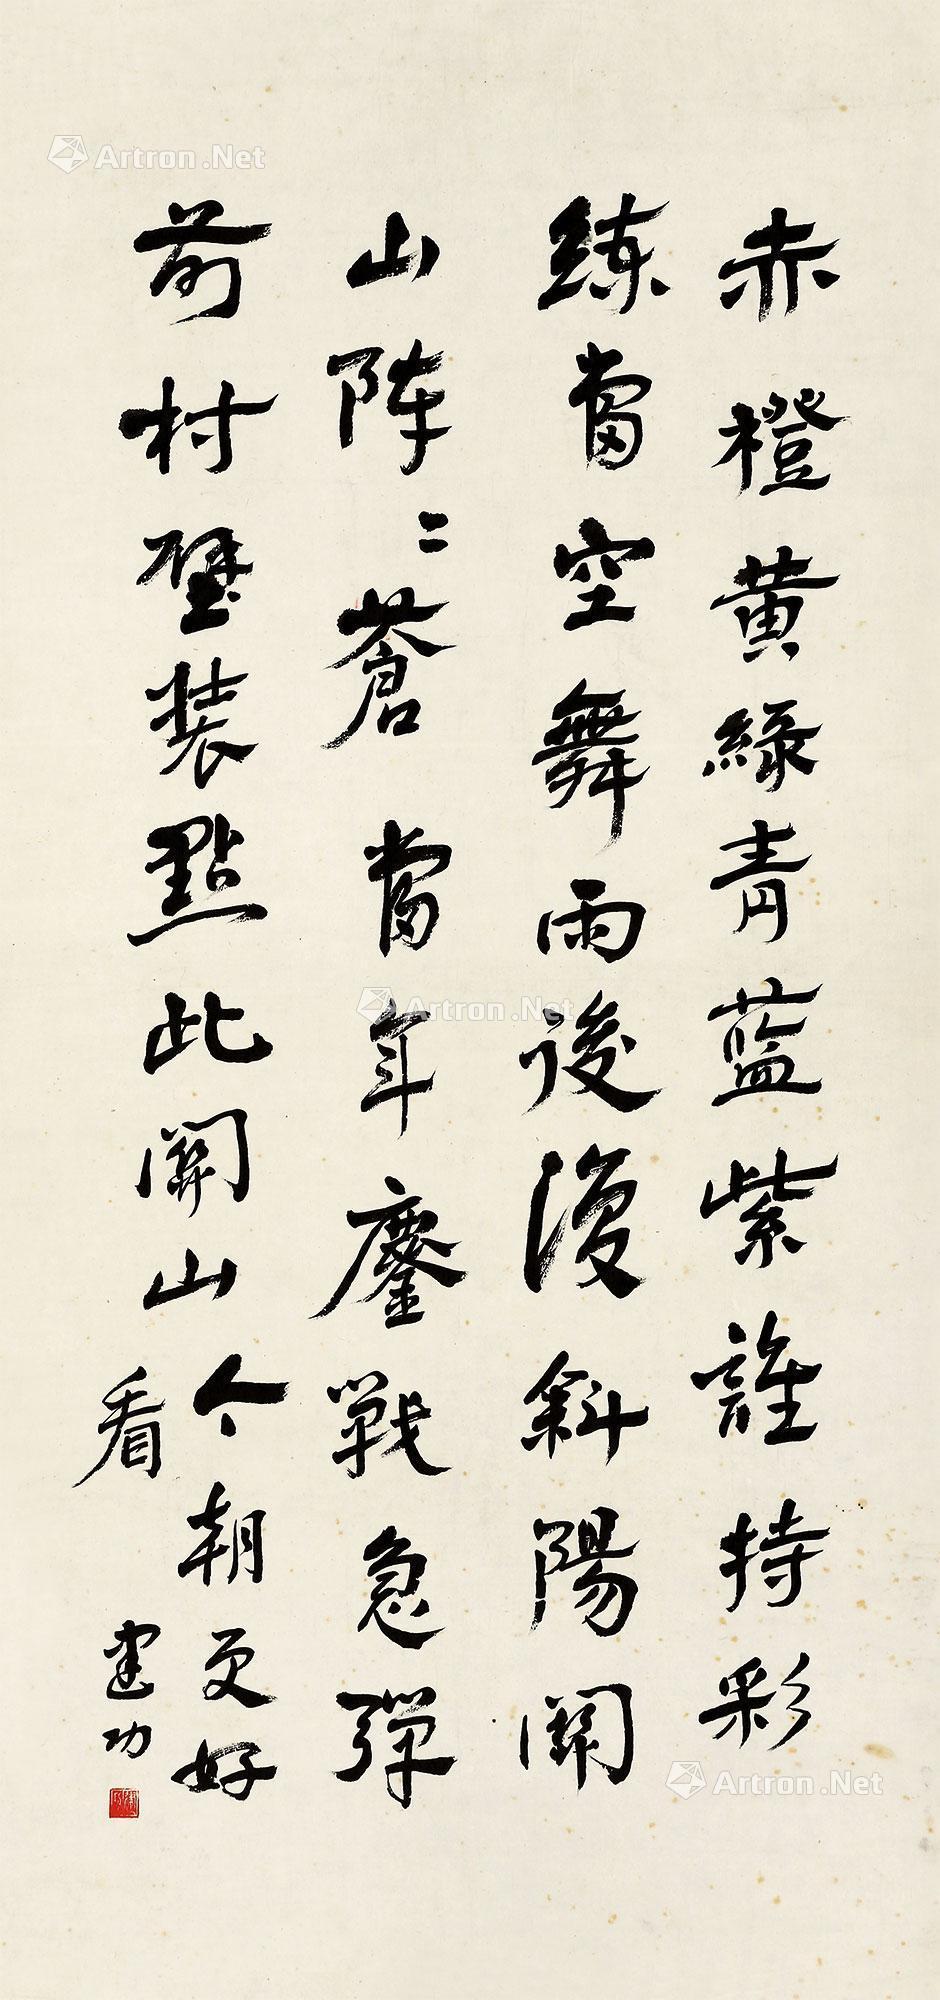 赤橙黄綠青蓝紫誰持彩
練當空舞雨後復斜陽關
山阵〻蒼當年鏖戰急彈
前村壁装點此關山今朝更好
看
建功
Artron.Net
Artron.Net
Artron.Net